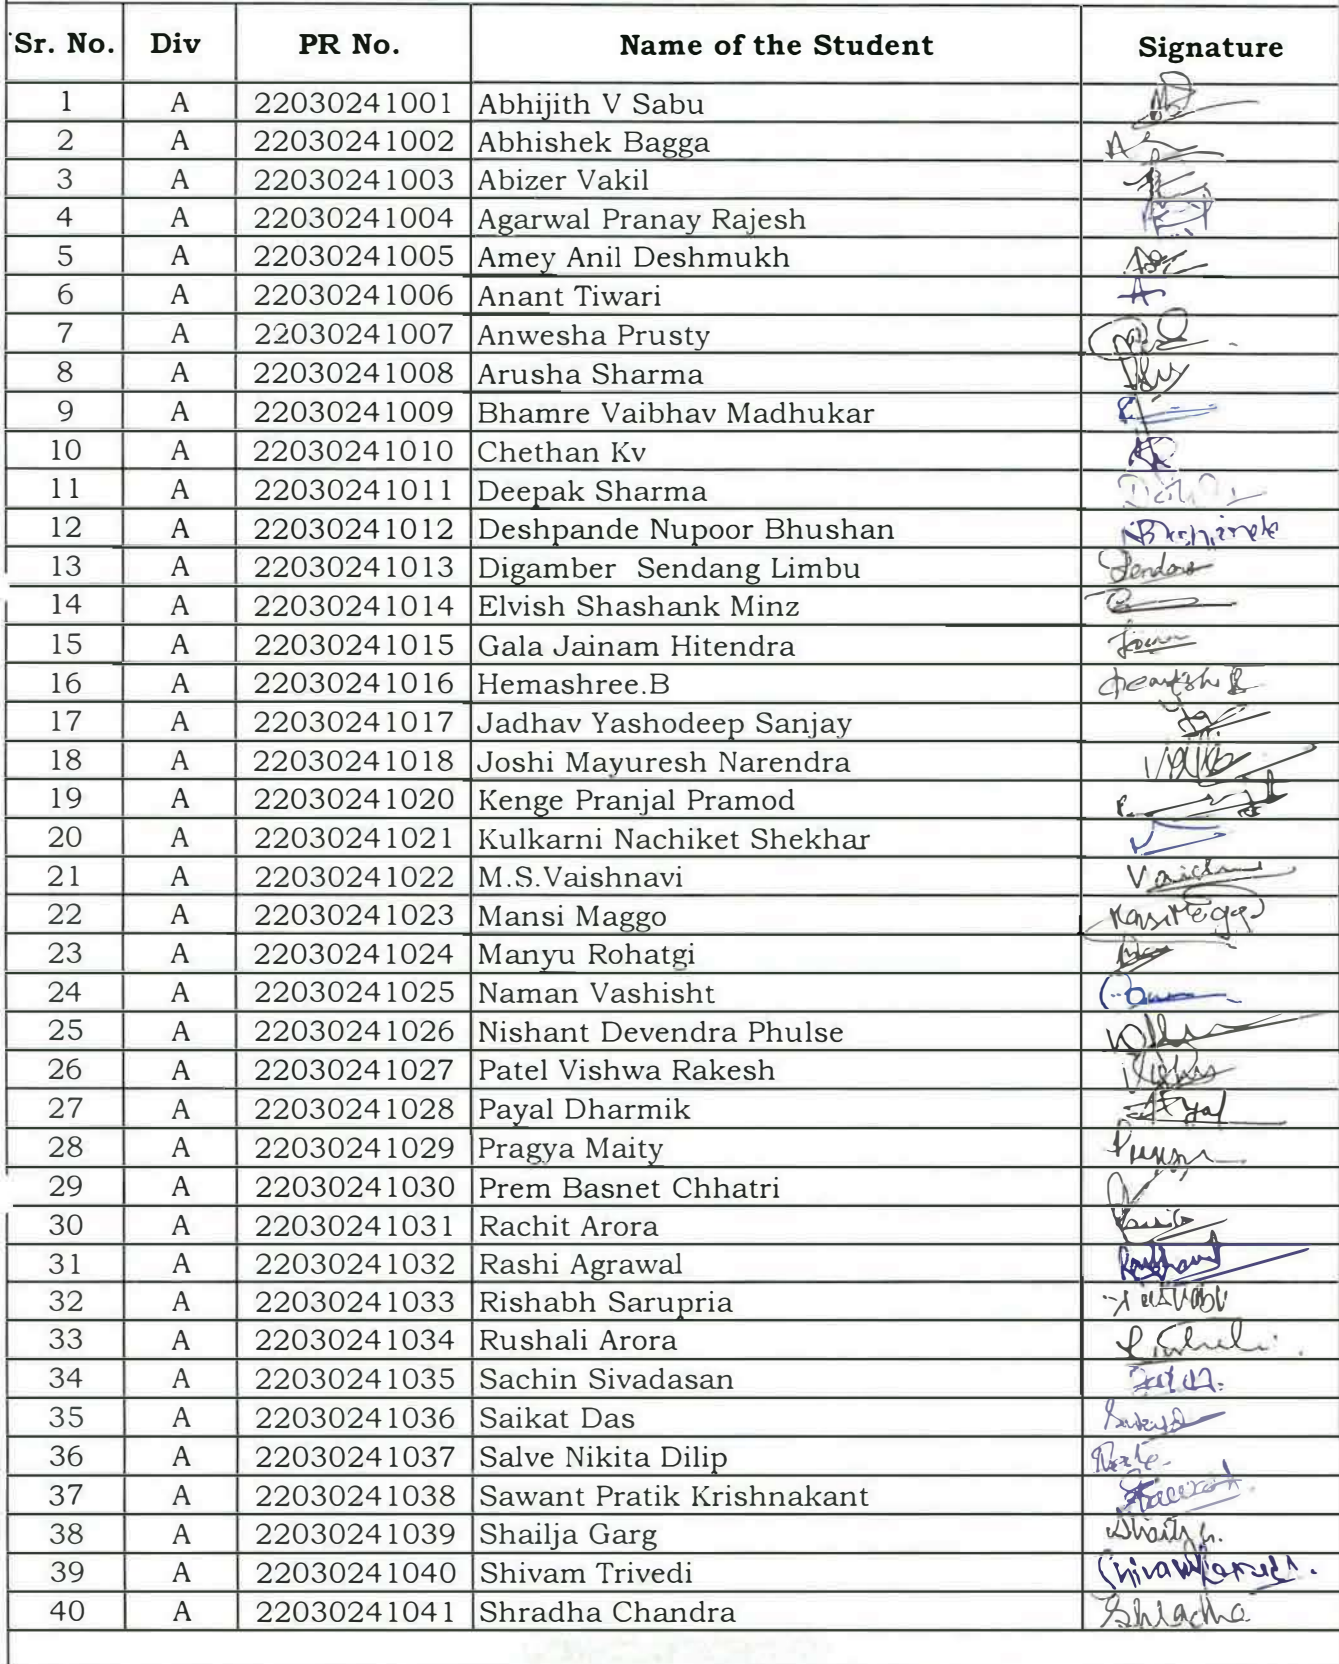 Sr. No. Div PR No. Name of the Student Signature
1 A 22030241001 Abhijith V Sabu
2 A 22030241002 Abhishek Bagga
3 A 22030241003 Abizer Vakil
4 A 22030241004 Agarwal Pranay Rajesh
5 A 22030241005 Amey Anil Deshmukh
6 A 22030241006 Anant Tiwari
7 A 22030241007 Anwesha Prusty
8 A 22030241008 Arusha Sharma
9 A 22030241009 Bhamre Vaibhav Madhukar
10 A 22030241010 Chethan Kv
11 A 22030241011 Deepak Sharma
12 A 22030241012 Deshpande Nupoor Bhushan
13 A 22030241013 Digamber Sendang Limbu
14 A 22030241014 Elvish Shashank Minz
15 A 22030241015 Gala Jainam Hitendra
16 A 22030241016 Hemashree.B
17 A 22030241017 Jadhav Yashodeep Sanjay
18 A 22030241018 Joshi Mayuresh Narendra
19 A 22030241020 Kenge Pranjal Pramod
20 A 22030241021 Kulkarni Nachiket Shekhar
21 A 22030241022 M.S.Vaishnavi
22 A 22030241023 Mansi Maggo
23 A 22030241024 Manyu Rohatgi
24 A 22030241025 Naman Vashisht
25 A 22030241026 Nishant Devendra Phulse
26 A 22030241027 Patel Vishwa Rakesh
27 A 22030241028 Payal Dharmik
28 A 22030241029 Pragya Maity
29 A 22030241030 Prem Basnet Chhatri
30 A 22030241031 Rachit Arora
31 A 22030241032 Rashi Agrawal
32 A 22030241033 Rishabh Sarupria
33 A 22030241034 Rushali Arora
34 A 22030241035 Sachin Sivadasan
35 A 22030241036 Saikat Das
36 A 22030241037 Salve Nikita Dilip
37 A 22030241038 Sawant Pratik Krishnakant
38 A 22030241039 Shailja Garg
39 A 22030241040 Shivam Trivedi
40 A 22030241041 Shradha Chandra Shradha